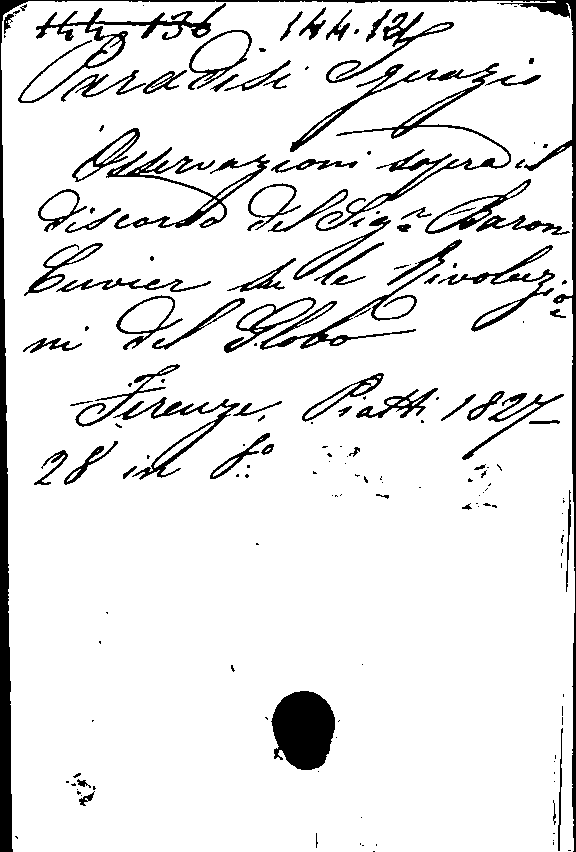 144.136 144.124
Paradisi Ignazio
Osservazioni sopra il
discorso del Sigr. Baron
Cuvier su le Rivoluzio
ni del Globo
Firenze, Piatti. 1827-
28 in 8o